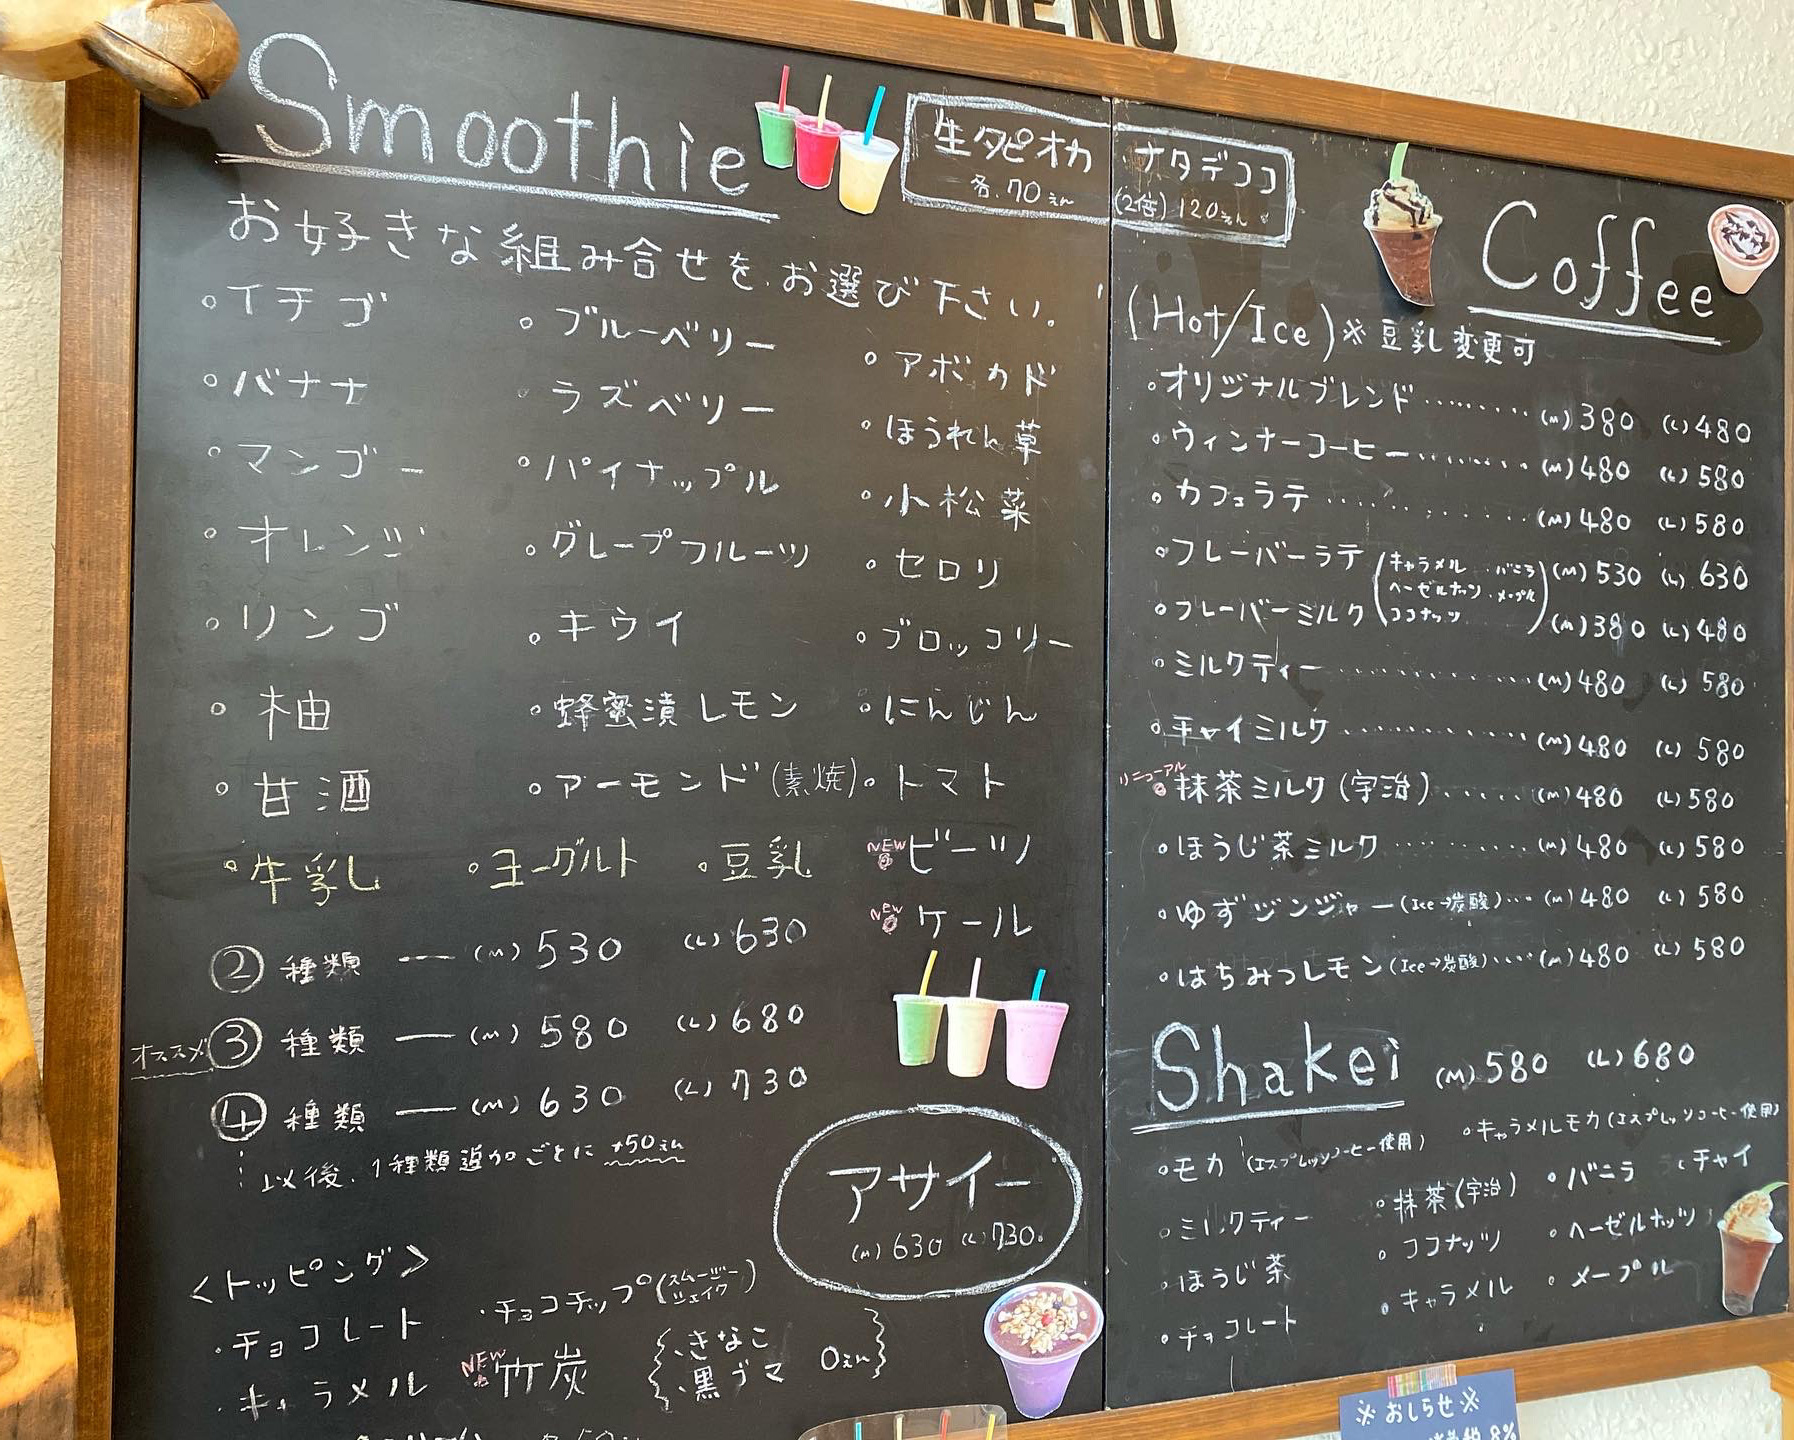 MENU
Smoothie
生タピオカ ナタデココ
各.70えん (2倍) 120えん
お好きな組み合せを、お選び下さい。
。イチゴ
。バナナ
。マンゴー
。オレンジ
。リンゴ
。柚
。甘酒
。ブルーベリー
。ラズベリー
。パイナップル
。グレープフルーツ
。キウイ
。蜂蜜漬レモン
。アーモンド(素焼)
。アボカド
。ほうれん草
。小松菜
。セロリ
。ブロッコリー
。にんじん
。トマト
NEW ビーツ
NEW ケール
。牛乳 。ヨーグルト 。豆乳
② 種類 ― (M) 530 (L) 630
オススメ ③ 種類 ― (M) 580 (L) 680
④ 種類 ― (M) 630 (L) 730
以後、1種類追加ごとに +50えん
アサイー
(M) 630 (L) 730
<トッピング>
・チョコレート
・キャラメル
・チョコチップ(スムージー シェイク)
NEW 竹炭
・きなこ
・黒ゴマ
0えん
Coffee
(Hot/Ice) ※豆乳変更可
。オリジナルブレンド (M) 380 (L) 480
。ウィンナーコーヒー (M) 480 (L) 580
。カフェラテ (M) 480 (L) 580
。フレーバーラテ (M) 530 (L) 630
。フレーバーミルク (M) 380 (L) 480
(キャラメル・バニラ
ヘーゼルナッツ・メープル
ココナッツ)
。ミルクティー (M) 480 (L) 580
。チャイミルク (M) 480 (L) 580
リニューアル 抹茶ミルク(宇治) (M) 480 (L) 580
。ほうじ茶ミルク (M) 480 (L) 580
。ゆずジンジャー(Ice→炭酸) (M) 480 (L) 580
。はちみつレモン(Ice→炭酸) (M) 480 (L) 580
Shakei (M) 580 (L) 680
。モカ (エスプレッソコーヒー使用) 。キャラメルモカ(エスプレッソコーヒー使用)
。ミルクティー 。抹茶(宇治) 。バニラ 。チャイ
。ほうじ茶 。ココナッツ 。ヘーゼルナッツ
。チョコレート 。キャラメル 。メープル
※おしらせ※
8%